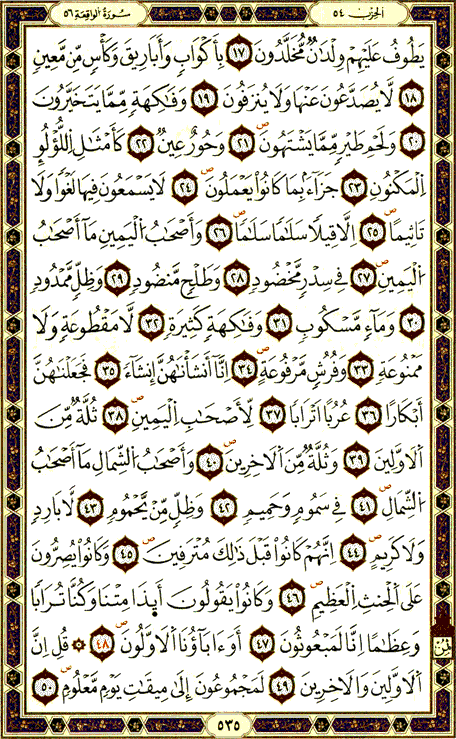 سُورَةُ الْوَاقِعَةِ ٥٦
الْحِزْبُ ٥٤
يَطُوفُ عَلَيْهِمْ وِلْدَانٌ مُّخَلَّدُونَ ١٧ بِأَكْوَابٍ وَأَبَارِيقَ وَكَأْسٍ مِّن مَّعِينٍ
١٨ لَا يُصَدَّعُونَ عَنْهَا وَلَا يُنزِفُونَ ١٩ وَفَاكِهَةٍ مِّمَّا يَتَخَيَّرُونَ
٢٠ وَلَحْمِ طَيْرٍ مِّمَّا يَشْتَهُونَ ٢١ وَحُورٌ عِينٌ ٢٢ كَأَمْثَالِ اللُّؤْلُوِٕ
الْمَكْنُونِ ٢٣ جَزَاءً بِمَا كَانُوا يَعْمَلُونَ ٢٤ لَا يَسْمَعُونَ فِيهَا لَغْوًا وَلَا
تَأْثِيمًا ٢٥ إِلَّا قِيلًا سَلَامًا سَلَامًا ٢٦ وَأَصْحَابُ الْيَمِينِ مَا أَصْحَابُ
الْيَمِينِ ٢٧ فِي سِدْرٍ مَّخْضُودٍ ٢٨ وَطَلْحٍ مَّنضُودٍ ٢٩ وَظِلٍّ مَّمْدُودٍ
٣٠ وَمَاءٍ مَّسْكُوبٍ ٣١ وَفَاكِهَةٍ كَثِيرَةٍ ٣٢ لَّا مَقْطُوعَةٍ وَلَا
مَمْنُوعَةٍ ٣٣ وَفُرُشٍ مَّرْفُوعَةٍ ٣٤ إِنَّا أَنشَأْنَاهُنَّ إِنشَاءً ٣٥ فَجَعَلْنَاهُنَّ
أَبْكَارًا ٣٦ عُرُبًا أَتْرَابًا ٣٧ لِّأَصْحَابِ الْيَمِينِ ٣٨ ثُلَّةٌ مِّنَ
الْأَوَّلِينَ ٣٩ وَثُلَّةٌ مِّنَ الْآخِرِينَ ٤٠ وَأَصْحَابُ الشِّمَالِ مَا أَصْحَابُ
الشِّمَالِ ٤١ فِي سَمُومٍ وَحَمِيمٍ ٤٢ وَظِلٍّ مِّن يَحْمُومٍ ٤٣ لَّا بَارِدٍ
وَلَا كَرِيمٍ ٤٤ إِنَّهُمْ كَانُوا قَبْلَ ذَٰلِكَ مُتْرَفِينَ ٤٥ وَكَانُوا يُصِرُّونَ
عَلَى الْحِنثِ الْعَظِيمِ ٤٦ وَكَانُوا يَقُولُونَ أَئِذَا مِتْنَا وَكُنَّا تُرَابًا
وَعِظَامًا إِنَّا لَمَبْعُوثُونَ ٤٧ أَوَءَابَاؤُنَا الْأَوَّلُونَ ٤٨ ۞ قُلْ إِنَّ
الْأَوَّلِينَ وَالْآخِرِينَ ٤٩ لَمَجْمُوعُونَ إِلَىٰ مِيقَاتِ يَوْمٍ مَّعْلُومٍ ٥٠
٥٣٥